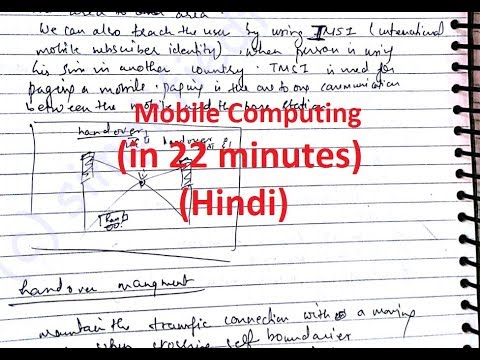 area
We can also teach the user by using IMSI (international
mobile subscriber identity), when person is using
his sim in another country. TMSI is used for
paging a mobile. paging is the one to one communication
between the mobile and the base station
Mobile Computing
(in 22 minutes)
(Hindi)
handover
handover
handover mangment
maintain the traffic connection with a moving
when crossing cell boundaries